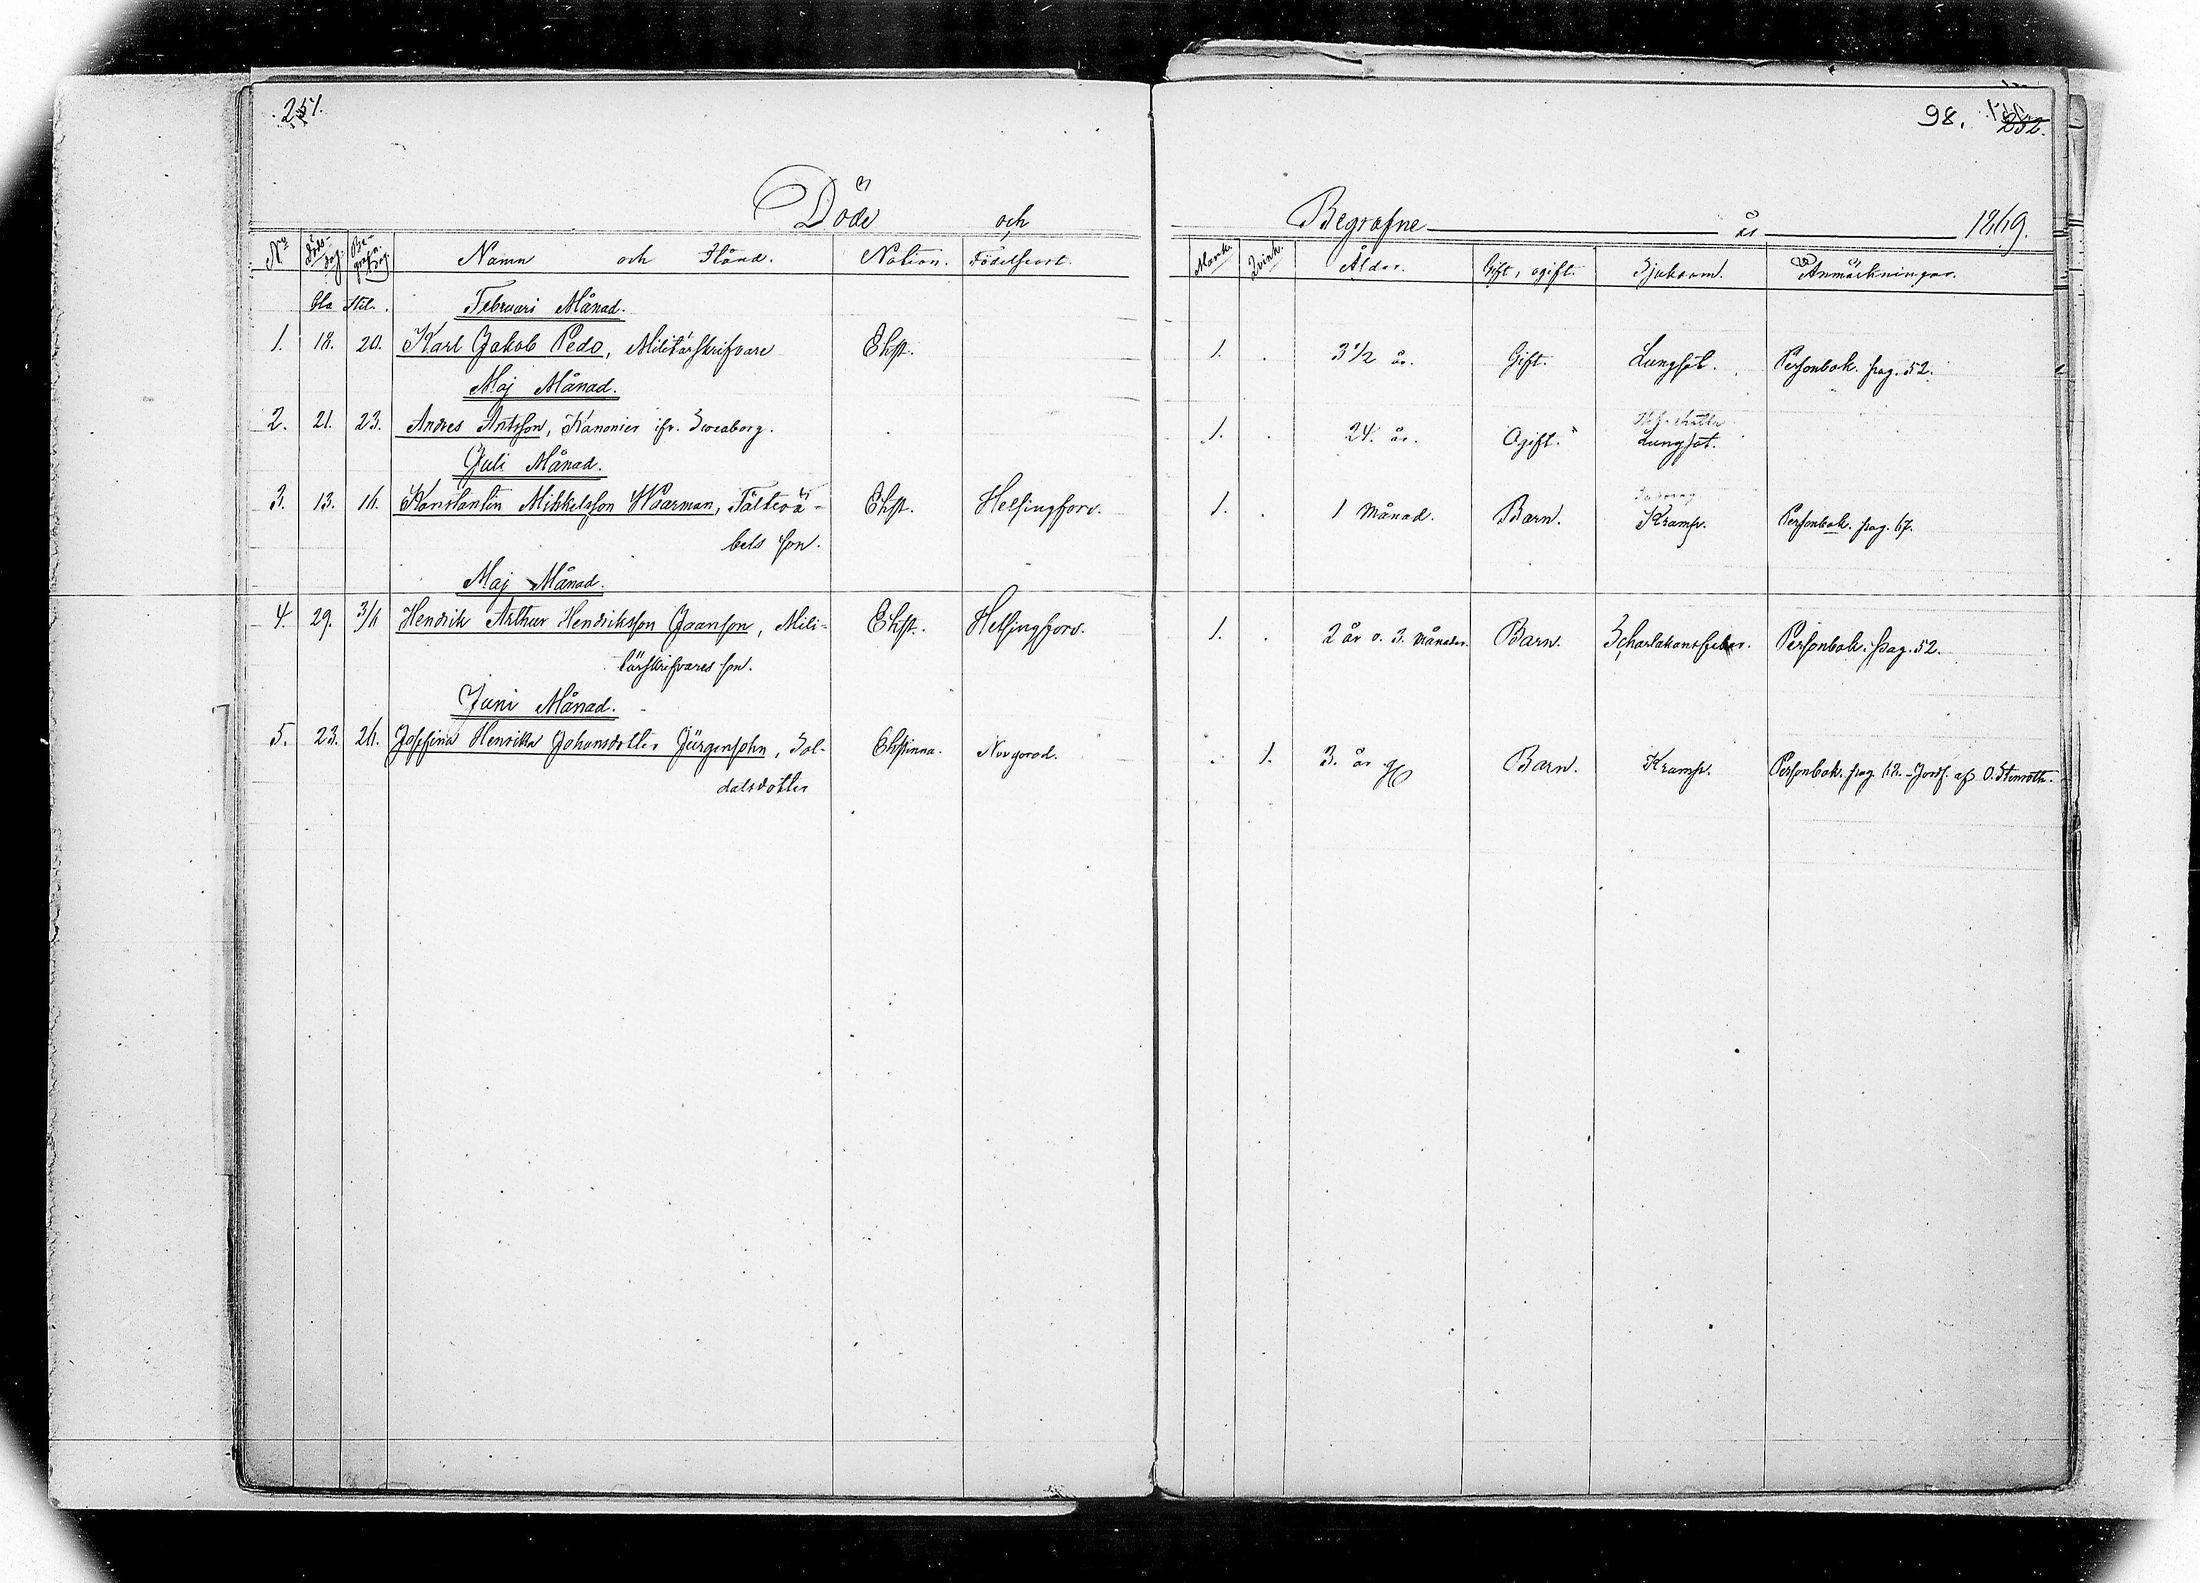 251.
98.
252.
Döde och Begrafne år 1869.
No Döds-dag. Be-grafn.dag. Namn och Stånd. Nation. Födelseort. Mank. Qvink. Ålder. Gift, ogift. Sjukdom. Anmärkningar.
Gla Stil. Februari Månad.
1. 18. 20. Karl Jakob Pedo, Militärskrifvare Ehst. 1. 3 1/2 år. Gift. Lungsot. Personbok. pag. 52.
Maj Månad.
2. 21. 23. Andres Antsson, Kanonier ifr. Sveaborg. 1. 24. år. Ogift. Lungsot.
Juli Månad.
3. 13. 16. Konstantin Mikkelsson Waarman, Fältvä- Ehst. Helsingfors. 1. 1 Månad. Barn. Kramp. Personbok. pag. 67.
bels son.
Maj Månad.
4. 29. 3/6 Hendrik Arthur Hendriksson Jaanson, Mili- Ehst. Helsingfors. 1. 2 år o. 3. Månader. Barn. Scharlakansfeber. Personbok. pag. 52.
tärskrifvares son.
Juni Månad.
5. 23. 26. Josefina Henrika Johansdotter Jürgensohn, Sol- Ehstinna. Novgorod. 1. 3. år Barn. Kramp. Personbok. pag. 68. - Jordf. af O. Stenroth.
datsdotter